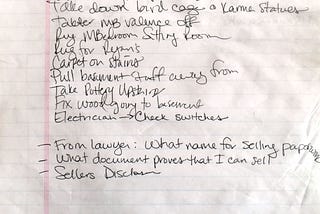 Take down bird cage & Karma statues
Tabler MB valance off
Rug MBedroom Sitting Room
Rug for Ryan's
Carpet on stairs
Pull basement stuff away from
Take Pottery Upstairs
Fix wood going to basement
Electrician → Check switches
- From lawyer: What name for selling
- What document proves that I can sell
- Sellers Disclosure